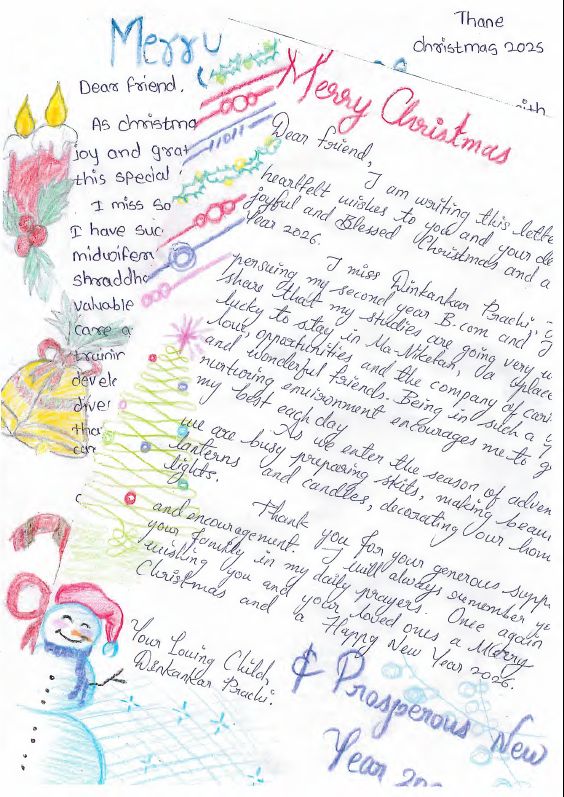 Thane
Christmas 2025
Merry
Dear friend,
As christma
joy and grat
this special
I miss so
I have suc
midwifery
shraddha
valuable
care a
trainin
develo
diver
that
can
with
Merry Christmas
Dear friend,
I am writing this lette
heartfelt wishes to you and your de
joyful and Blessed Christmas and a
Year 2026.
I miss Dinkankar Prachi,
persuing my second year B.com and I
share that my studies are going very w
lucky to stay in Ma-Niketan, a place
love, opportunities and the company of cari
and wonderful friends. Being in such a
nurturing environment encourages me to g
my best each day
As we enter the season of adven
we are busy preparing skits, making beau
lanterns and candles, decorating our hom
lights.
Thank you for your generous supp
and encouragement I will always remember yo
your family in my daily prayers. Once again
wishing you and your loved ones a Merry
Christmas and a Happy New Year 2026.
Your Loving Child,
Dinkankar Prachi.
& Prosperous New
Year 20